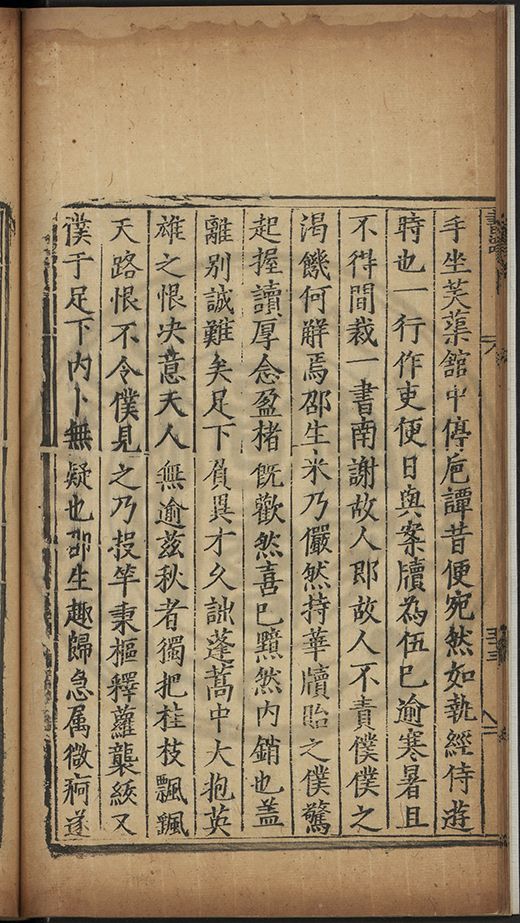 手坐芙蕖舘中停卮譚昔便宛然如執經侍遊
時也一行作吏便日與案牘為伍巳逾寒暑且
不得間裁一書南謝故人即故人不責僕僕之
渴饑何解焉邵生來乃儼然持華牘貽之僕驚
起握讀厚念盈楮既歡然喜巳黯然内銷也盖
離别誠難矣足下負異才久詘蓬蒿中大抱英
雄之恨决意天人無逾茲秋者獨把桂枝飄颻
天路恨不令僕見之乃投竿秉樞釋蘿襲綉又
僕于足下内卜無疑也邵生趣歸急属微痾遂